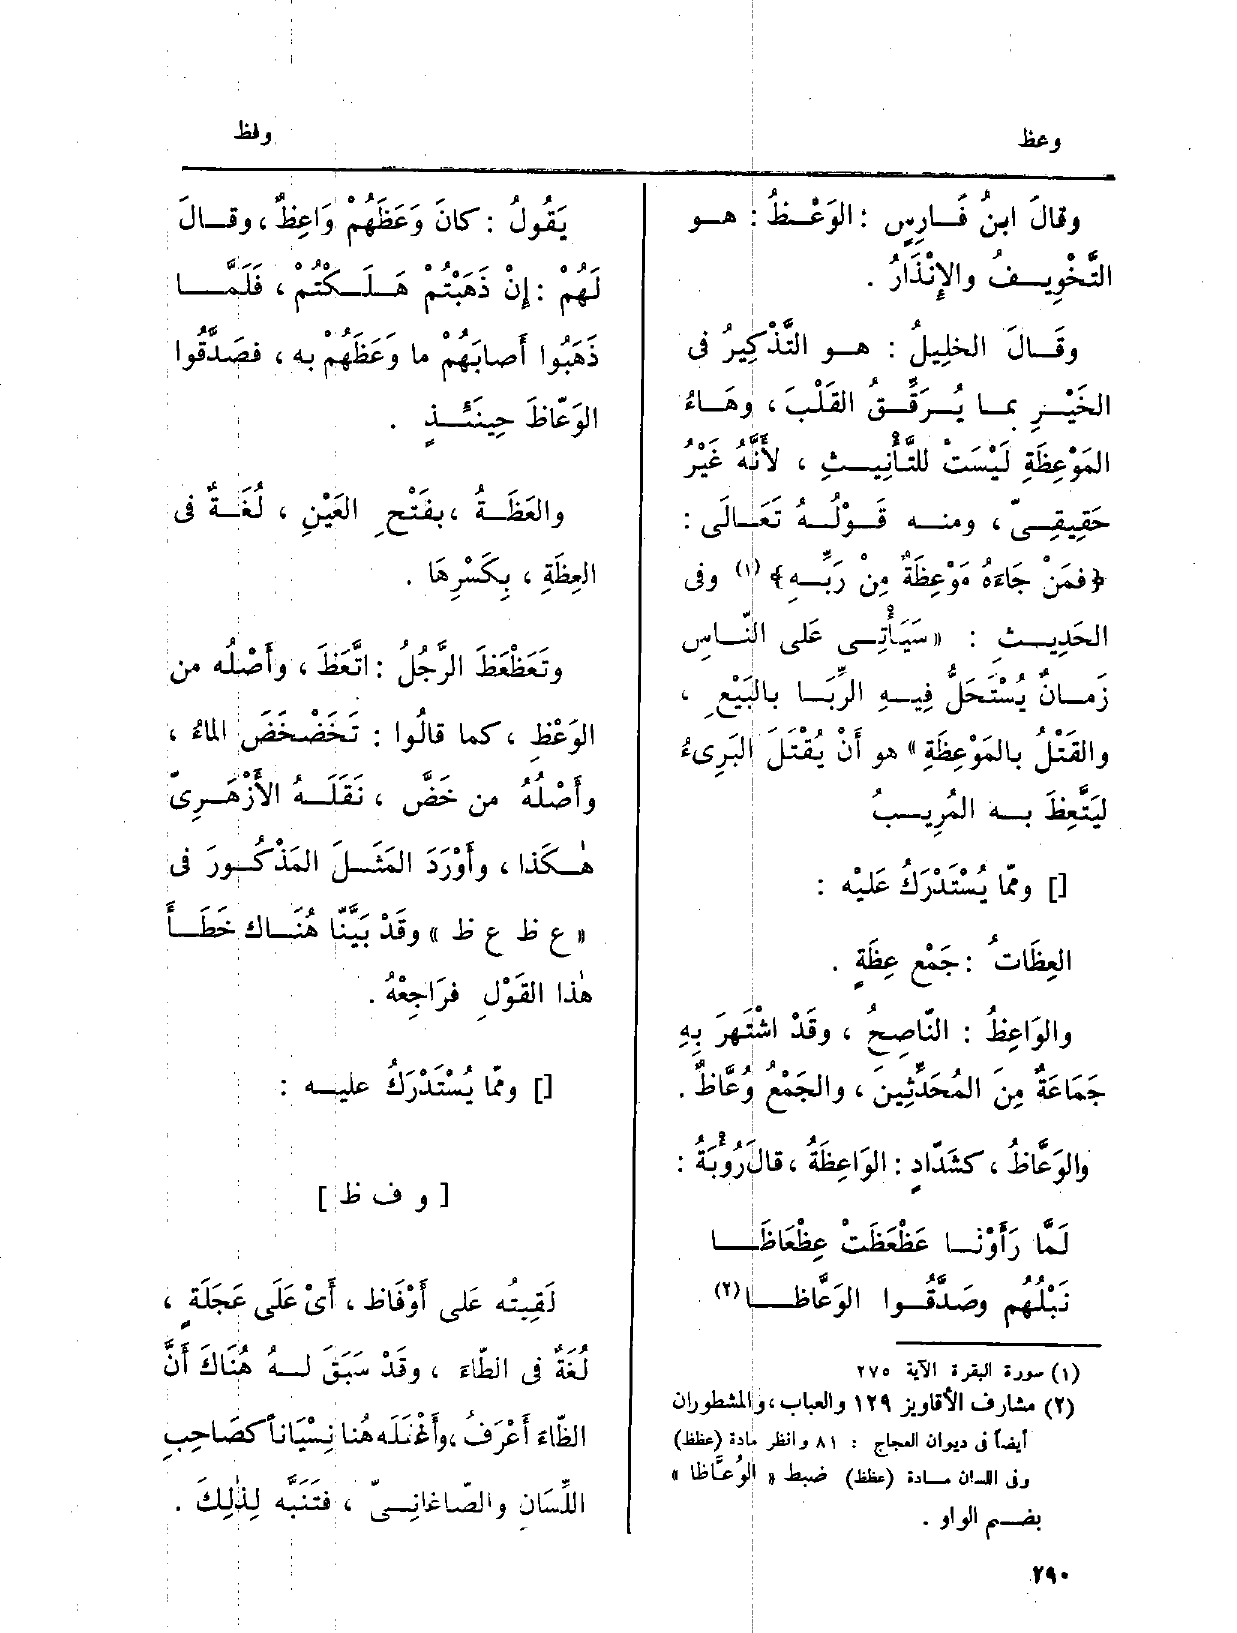 وعظ
وفظ
وقالَ ابنُ فَارِسٍ : الوَعْظُ : هو
التَّخْوِيفُ والإِنْذَارُ .
وقَالَ الخليلُ : هو التَّذْكِيرُ فى
الخَيْرِ بما يُرَقِّقُ القَلْبَ ، وهَاءُ
المَوْعِظَةِ لَيْسَتْ للتَّأْنِيثِ ، لأَنَّهُ غَيْرُ
حَقِيقِىّ ، ومنه قَوْلُهُ تَعَالَى :
﴿فمَنْ جَاءَهُ مَوْعِظَةٌ مِنْ رَبِّهِ﴾ (١) وفى
الحَدِيثِ : «سَيَأْتِى عَلَى النَّاسِ
زَمانٌ يُسْتَحَلُّ فِيهِ الرِّبَا بالبَيْعِ ،
والقَتْلُ بالمَوْعِظَةِ» هو أَنْ يُقْتَلَ البَرِىءُ
لِيَتَّعِظَ به المُرِيبُ
[] وممّا يُسْتَدْرَكُ عَلَيْه :
العِظَاتُ : جَمْع عِظَةٍ .
والوَاعِظُ : النّاصِحُ ، وقَدْ اشْتَهَرَ بِهِ
جَمَاعَةٌ مِنَ المُحَدِّثِينَ ، والجَمْعُ وُعَّاظٌ .
والوَعَّاظُ ، كشَدّادٍ : الوَاعِظَةُ ، قالَ رُؤْبَةُ :
لَمَّا رَأَوْنَا عَظْعَظَتْ عِظْعَاظَا
نَبْلُهُم وصَدَّقُوا الوَعَّاظَا (٢)
(١) سورة البقرة الآية ٢٧٥
(٢) مشارف الأقاويز ١٢٩ والعباب ، والمشطوران
أيضاً فى ديوان العجاج : ٨١ وانظر مادة (عظظ)
وفى اللسان مادة (عظظ) ضبط « الوُعَّاظا »
بضم الواو .
٢٩٠
يَقُولُ : كانَ وَعَظَهُمْ وَاعِظٌ ، وقالَ
لَهُمْ : إِنْ ذَهَبْتُمْ هَلَكْتُمْ ، فَلَمَّا
ذَهَبُوا أَصابَهُمْ ما وَعَظَهُمْ به ، فصَدَّقُوا
الوَعّاظَ حِينَئِذٍ .
والعَظَةُ ، بفَتْحِ العَيْنِ ، لُغَةٌ فى
العِظَةِ ، بِكَسْرِهَا .
وتَعَظْعَظَ الرَّجُلُ : اتَّعَظَ ، وأَصْلُه من
الوَعْظِ ، كما قالُوا : تَخَضْخَضَ الماءُ ،
وأَصْلُهُ من خَضَّ ، نَقَلَهُ الأَزْهَرِىّ
هٰكَذا ، وأَوْرَدَ المَثَلَ المَذْكُورَ فى
« ع ظ ع ظ » وقَدْ بَيَّنّا هُنَاك خَطَأَ
هٰذا القَوْلِ فرَاجِعْهُ .
[] وممّا يُسْتَدْرَكُ عليه :
[ و ف ظ ]
لَقِيتُه عَلى أَوْفَاظ ، أَىْ عَلَى عَجَلَةٍ ،
لُغَةٌ فى الطّاءِ ، وقَدْ سَبَقَ لهُ هُنَاكَ أَنَّ
الظّاءَ أَعْرَفُ ، وأَغْفَلَه هُنا نِسْيَاناً كصَاحِبِ
اللِّسَانِ والصّاغانِىّ ، فتَنَبَّه لِذٰلِكَ .